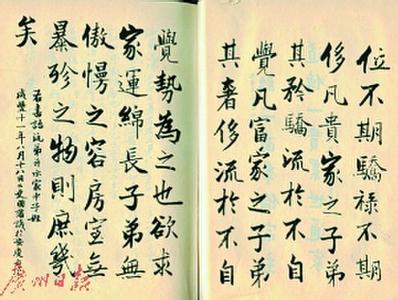 位不期驕祿不期
侈凡貴家之子弟
其矜驕流於不自
覺凡富家之子弟
其奢侈流於不自
覺勢為之也欲求
家運綿長子弟無
傲慢之容房室無
暴殄之物則庶幾
矣
右書語沅弟并示家中子姪
咸豐十一年八月十八日國藩識於安慶
廣州日報